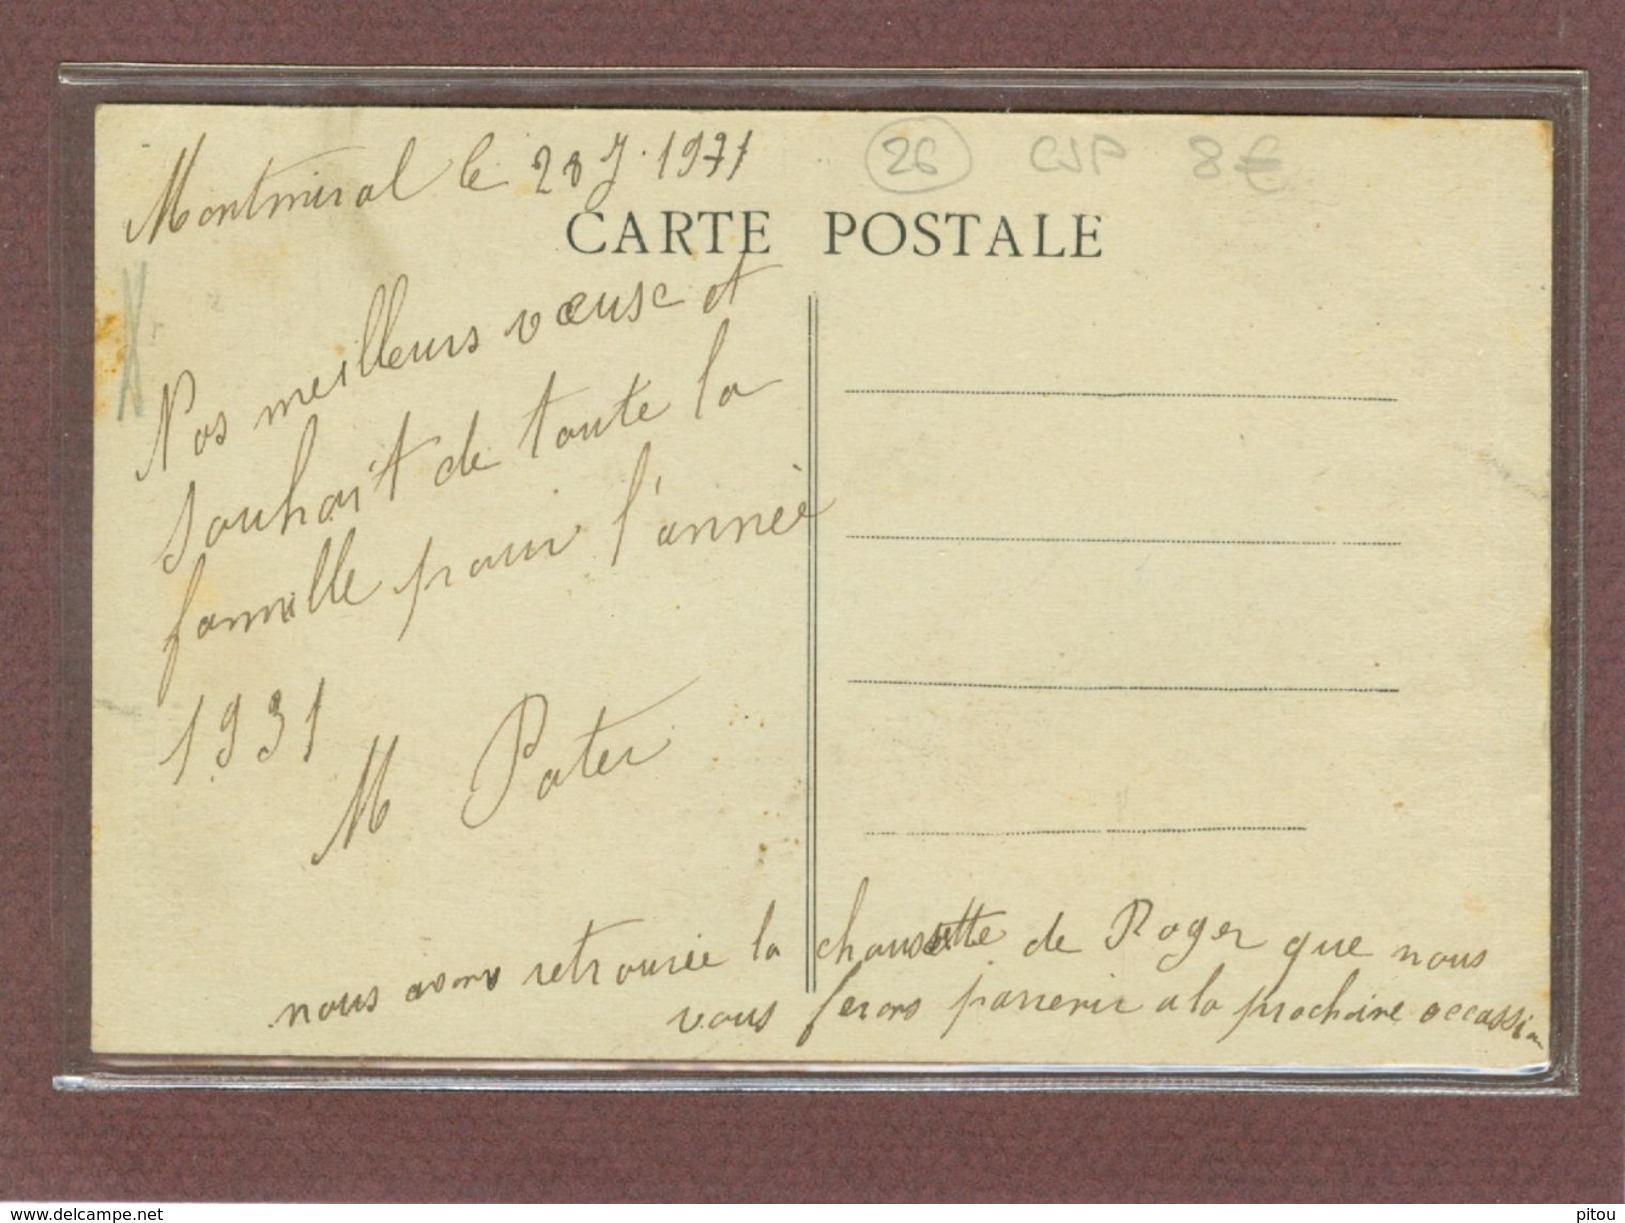 Montmiral le 28 J. 1931
26 CSP 8€
CARTE POSTALE
Nos meilleurs vœusc et
souhait de toute la
famille pour l'année
1931
M Pater
nous avons retrouvée la chaussette de Roger que nous
vous ferons parvenir a la prochaine occassion
www.delcampe.net
pitou